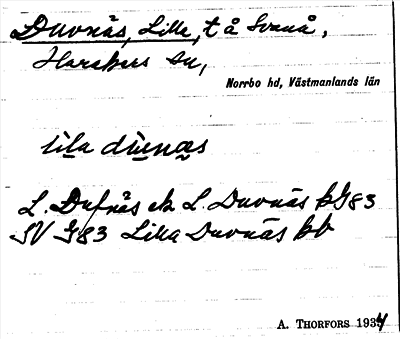 Duvnäs, Lilla, t å Svanå,
Harakers sn,
Norrbo hd, Västmanlands län
lila dúvnäs
L. Dufnäs ek L. Duvnäs kbG83
SV G83 Lilla Duvnäs kb
A. THORFORS 1934